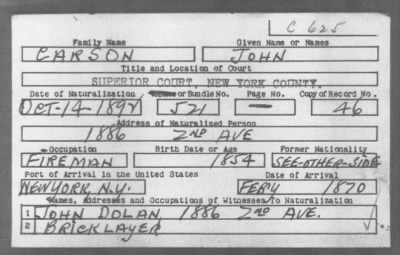 C 625
Family Name Given Name or Names
CARSON JOHN
Title and Location of Court
SUPERIOR COURT, NEW YORK COUNTY.
Date of Naturalization Volume or Bundle No. Page No. Copy of Record No.
OCT-14-1892 521 — 46
Address of Naturalized Person
1886 2ND AVE
Occupation Birth Date or Age Former Nationality
FIREMAN 1854 SEE-OTHER-SIDE
Port of Arrival in the United States Date of Arrival
NEW YORK, N.Y. FEBY 1870
Names, Addresses and Occupations of Witnesses To Naturalization
1 JOHN DOLAN, 1886 2ND AVE.
2 BRICKLAYER